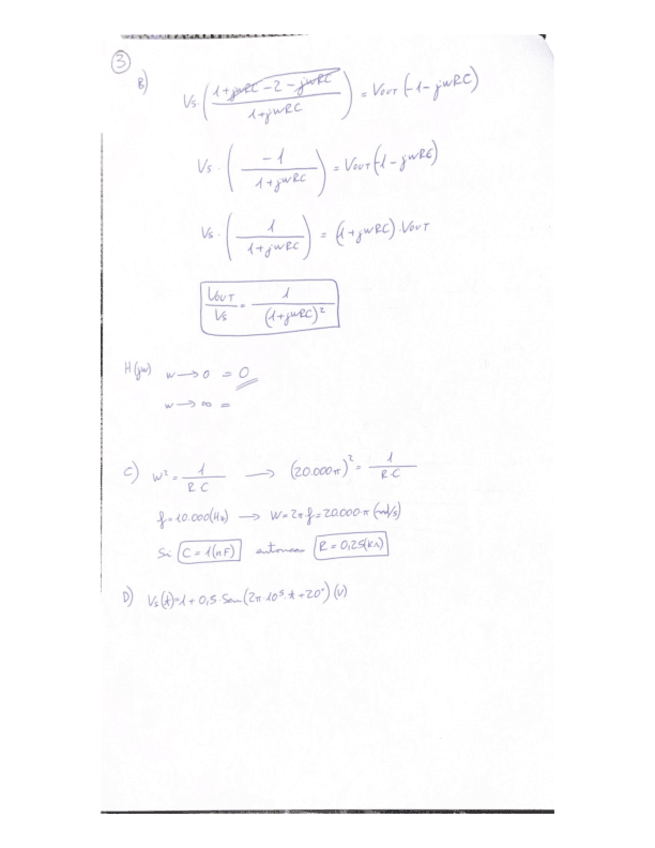 3
B) Vs · ( (1+jwRC - 2 - jwRC) / (1+jwRC) ) = VOUT (-1 - jwRC)
Vs · ( -1 / (1+jwRC) ) = VOUT (-1 - jwRC)
Vs · ( 1 / (1+jwRC) ) = (1+jwRC) · VOUT
VOUT / Vs = 1 / (1+jwRC)²
H(jw) w → 0 = 0
w → ∞ =
C) w² = 1 / R·C → (20.000π)² = 1 / R·C
f = 10.000(Hz) → W = 2π f = 20.000·π (rad/s)
Si C = 1(nF) entonces R = 0,25(KΩ)
D) Vs(t) = 1 + 0,5 · Sen(2π·10⁵·t + 20°) (V)